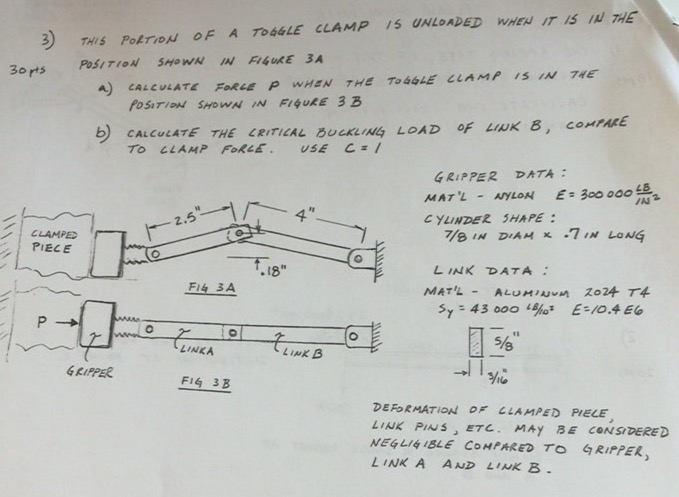 3) THIS PORTION OF A TOGGLE CLAMP IS UNLOADED WHEN IT IS IN THE
30 pts POSITION SHOWN IN FIGURE 3A
a) CALCULATE FORCE P WHEN THE TOGGLE CLAMP IS IN THE
POSITION SHOWN IN FIGURE 3B
b) CALCULATE THE CRITICAL BUCKLING LOAD OF LINK B, COMPARE
TO CLAMP FORCE. USE C = 1
GRIPPER DATA:
MAT'L - NYLON E = 300 000 LB/IN²
CYLINDER SHAPE:
7/8 IN DIAM x .7 IN LONG
LINK DATA:
MAT'L - ALUMINUM 2024 T4
Sy = 43 000 LB/IN² E=10.4 E6
5/8"
3/16"
2.5"
4"
CLAMPED
PIECE
.18"
FIG 3A
P
LINK A
LINK B
GRIPPER
FIG 3B
DEFORMATION OF CLAMPED PIECE,
LINK PINS, ETC. MAY BE CONSIDERED
NEGLIGIBLE COMPARED TO GRIPPER,
LINK A AND LINK B.